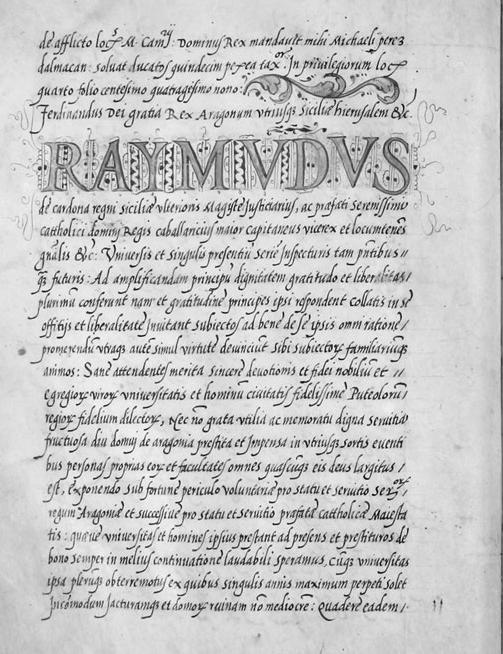 de afflicto locꝭ M. Camrꝰ: Dominus Rex mandauit mihi Michaeli perez
dalmacan: soluat ducatos quindecim pro taxa: In priuilegiorum locꝭ
quarto folio centesimo quatragesimo nono:
Ferdinandus Dei gratia Rex Aragonum vtriusqꝫ Siciliæ hierusalem &c.
RAYMVDVS
de cardona regni siciliæ vlterioris Magister Justiciarius, ac præfati serenissimi
catholici domini Regis caballaricius maior capitaneus vicerex et locumtenēs
gn̄alis &c: Vniuersis et singulis presentiū serie Inspecturis tam pn̄tibus //
qꝫ futuris: Ad amplificandam principū dignitatem gratitudo et liberalitas /
plurimū conferunt nam et gratitudine principes ipsi respondent collatis in se
offitijs et liberalitate Inuitant subiectos ad bene de se ipsis omni ratione /
promerendū vtraqꝫ autē simul virtute deuinciūt sibi subiectoꝝ familiariūqꝫ
animos: Sanè attendentes merita sincere deuotionis et fidei nobiliū et //
egregioꝝ viroꝝ vniuersitatis et hominū ciuitatis fidelissime Puteoloruꝫ
regioꝝ fidelium dilectoꝝ, Nec nō grata vtilia ac memoratu digna seruitia
fructuosa diu domuj de aragonia prestita et Impensa in vtriusqꝫ sortis euenti
bus personas proprias eoꝝ et facultates omnes quascuqꝫ eis deus largitus /
est, exponendo sub fortune periculo voluntariè pro statu et seruitio ser.ᵒʳꝭ
regum Aragoniæ et successiuè pro statu et seruitio præfatæ catholicæ Maiesta
tis: quæue vniuersitas et homines ipsius prestant ad presens et prestituros de
bono semper in melius continuatione laudabili speramus, Cuqꝫ vniuersitas
ipsa plerūqꝫ ob terremotus ex quibus singulis annis maximum perpeti solet
Incōmodum Jacturamqꝫ et domoꝝ ruinam nō mediocrē: Quadere eadem /